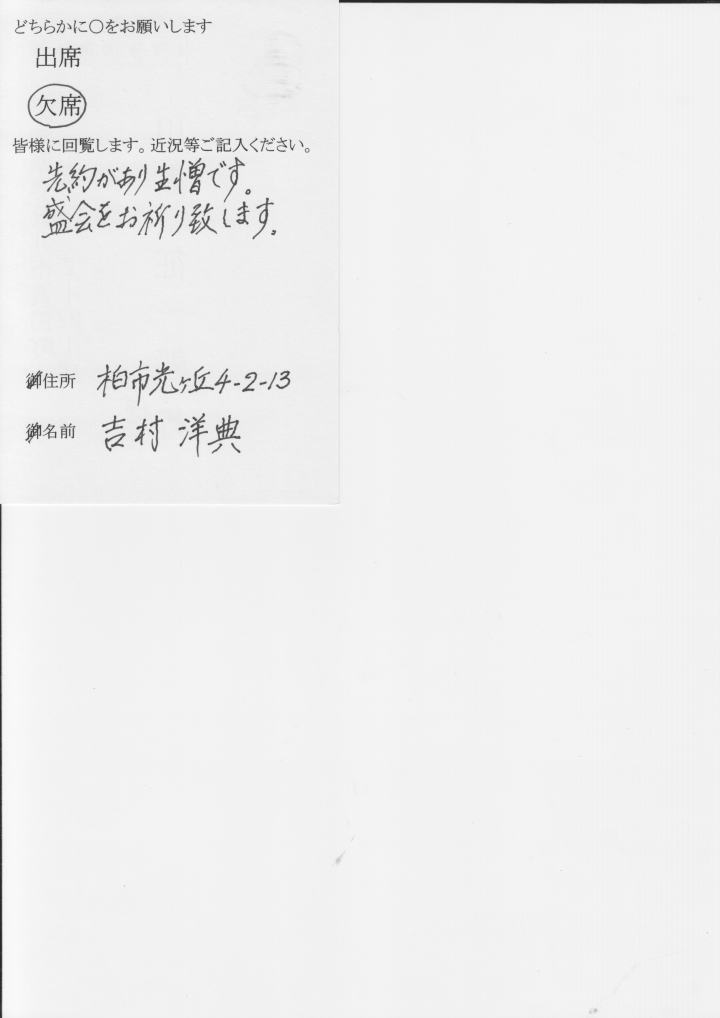 どちらかに○をお願いします
出席
欠席
皆様に回覧します。近況等ご記入ください。
先約があり生憎です。
盛会をお祈り致します。
御住所 柏市光ヶ丘4-2-13
御名前 吉村 洋典